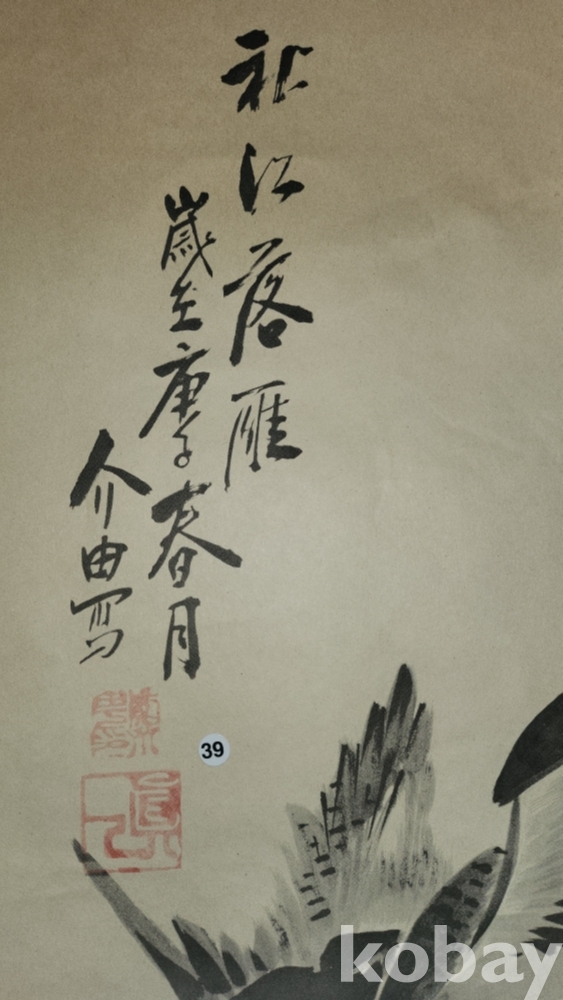 秋江落雁
歲在庚子春月
介由寫
39
kobay